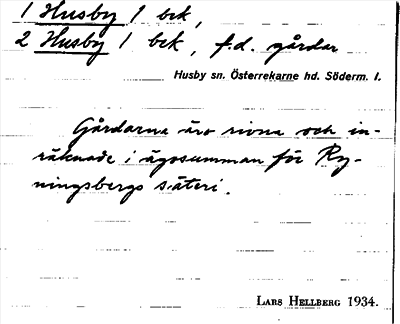 1 Husby 1 bck,
2 Husby 1 bck, f.d. gårdar
Husby sn. Österrekarne hd. Söderm. l.
Gårdarna äro rivna och in-
räknade i ägosumman för Ry-
ningsbergs säteri.
LARS HELLBERG 1934.